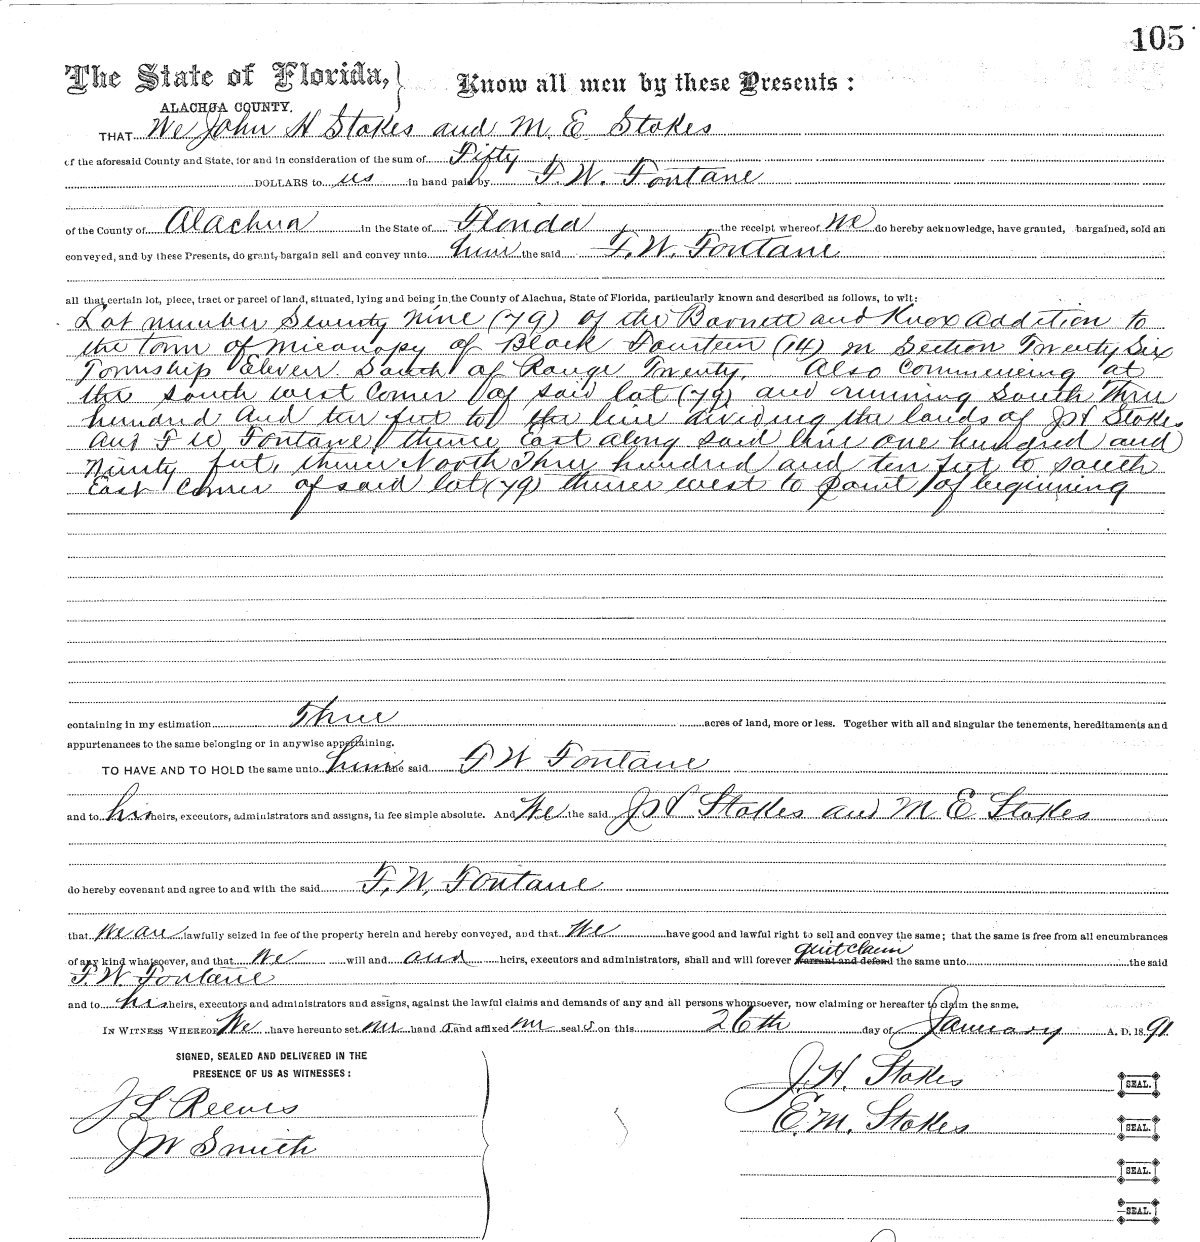 105
The State of Florida, } Know all men by these Presents :
ALACHUA COUNTY.
THAT We John H Stokes and M. E Stokes
of the aforesaid County and State, for and in consideration of the sum of Fifty
DOLLARS to us in hand paid by F. W. Fontane
of the County of Alachua in the State of Florida the receipt whereof we do hereby acknowledge, have granted, bargained, sold an
conveyed, and by these Presents, do grant, bargain sell and convey unto him the said F. W. Fontane
all that certain lot, piece, tract or parcel of land, situated, lying and being in the County of Alachua, State of Florida, particularly known and described as follows, to wit:
Lot number Seventy nine (79) of the Barnett and Knox Addition to
the town of Micanopy of Block Fourteen (14) in Section Twenty Six
Township Eleven South of Range Twenty. Also Commencing at
the south west Corner of said lot (79) and running South Three
hundred and ten feet to the line dividing the lands of J H Stokes
and F W Fontane, thence East along said line one hundred and
Ninety feet, thence North Three hundred and ten feet to south
East Corner of said lot (79) thence west to point of beginning
containing in my estimation Three acres of land, more or less. Together with all and singular the tenements, hereditaments and
appurtenances to the same belonging or in anywise appertaining.
TO HAVE AND TO HOLD the same unto him the said F W Fontane
and to his heirs, executors, administrators and assigns, in fee simple absolute. And We the said J H Stokes and M E Stokes
do hereby covenant and agree to and with the said F. W. Fontane
that we are lawfully seized in fee of the property herein and hereby conveyed, and that We have good and lawful right to sell and convey the same; that the same is free from all encumbrances
quit claim
of any kind whatsoever, and that We will and and heirs, executors and administrators, shall and will forever warrant and defend the same unto the said
F. W. Fontane
and to his heirs, executors and administrators and assigns, against the lawful claims and demands of any and all persons whomsoever, now claiming or hereafter to claim the same.
IN WITNESS WHEREOF We have hereunto set our hand s and affixed our seal s on this 26th day of January A. D. 18 91.
SIGNED, SEALED AND DELIVERED IN THE
PRESENCE OF US AS WITNESSES :
J. H. Stokes SEAL.
J L Reeves
E. M. Stokes SEAL.
J W Smith
SEAL.
SEAL.